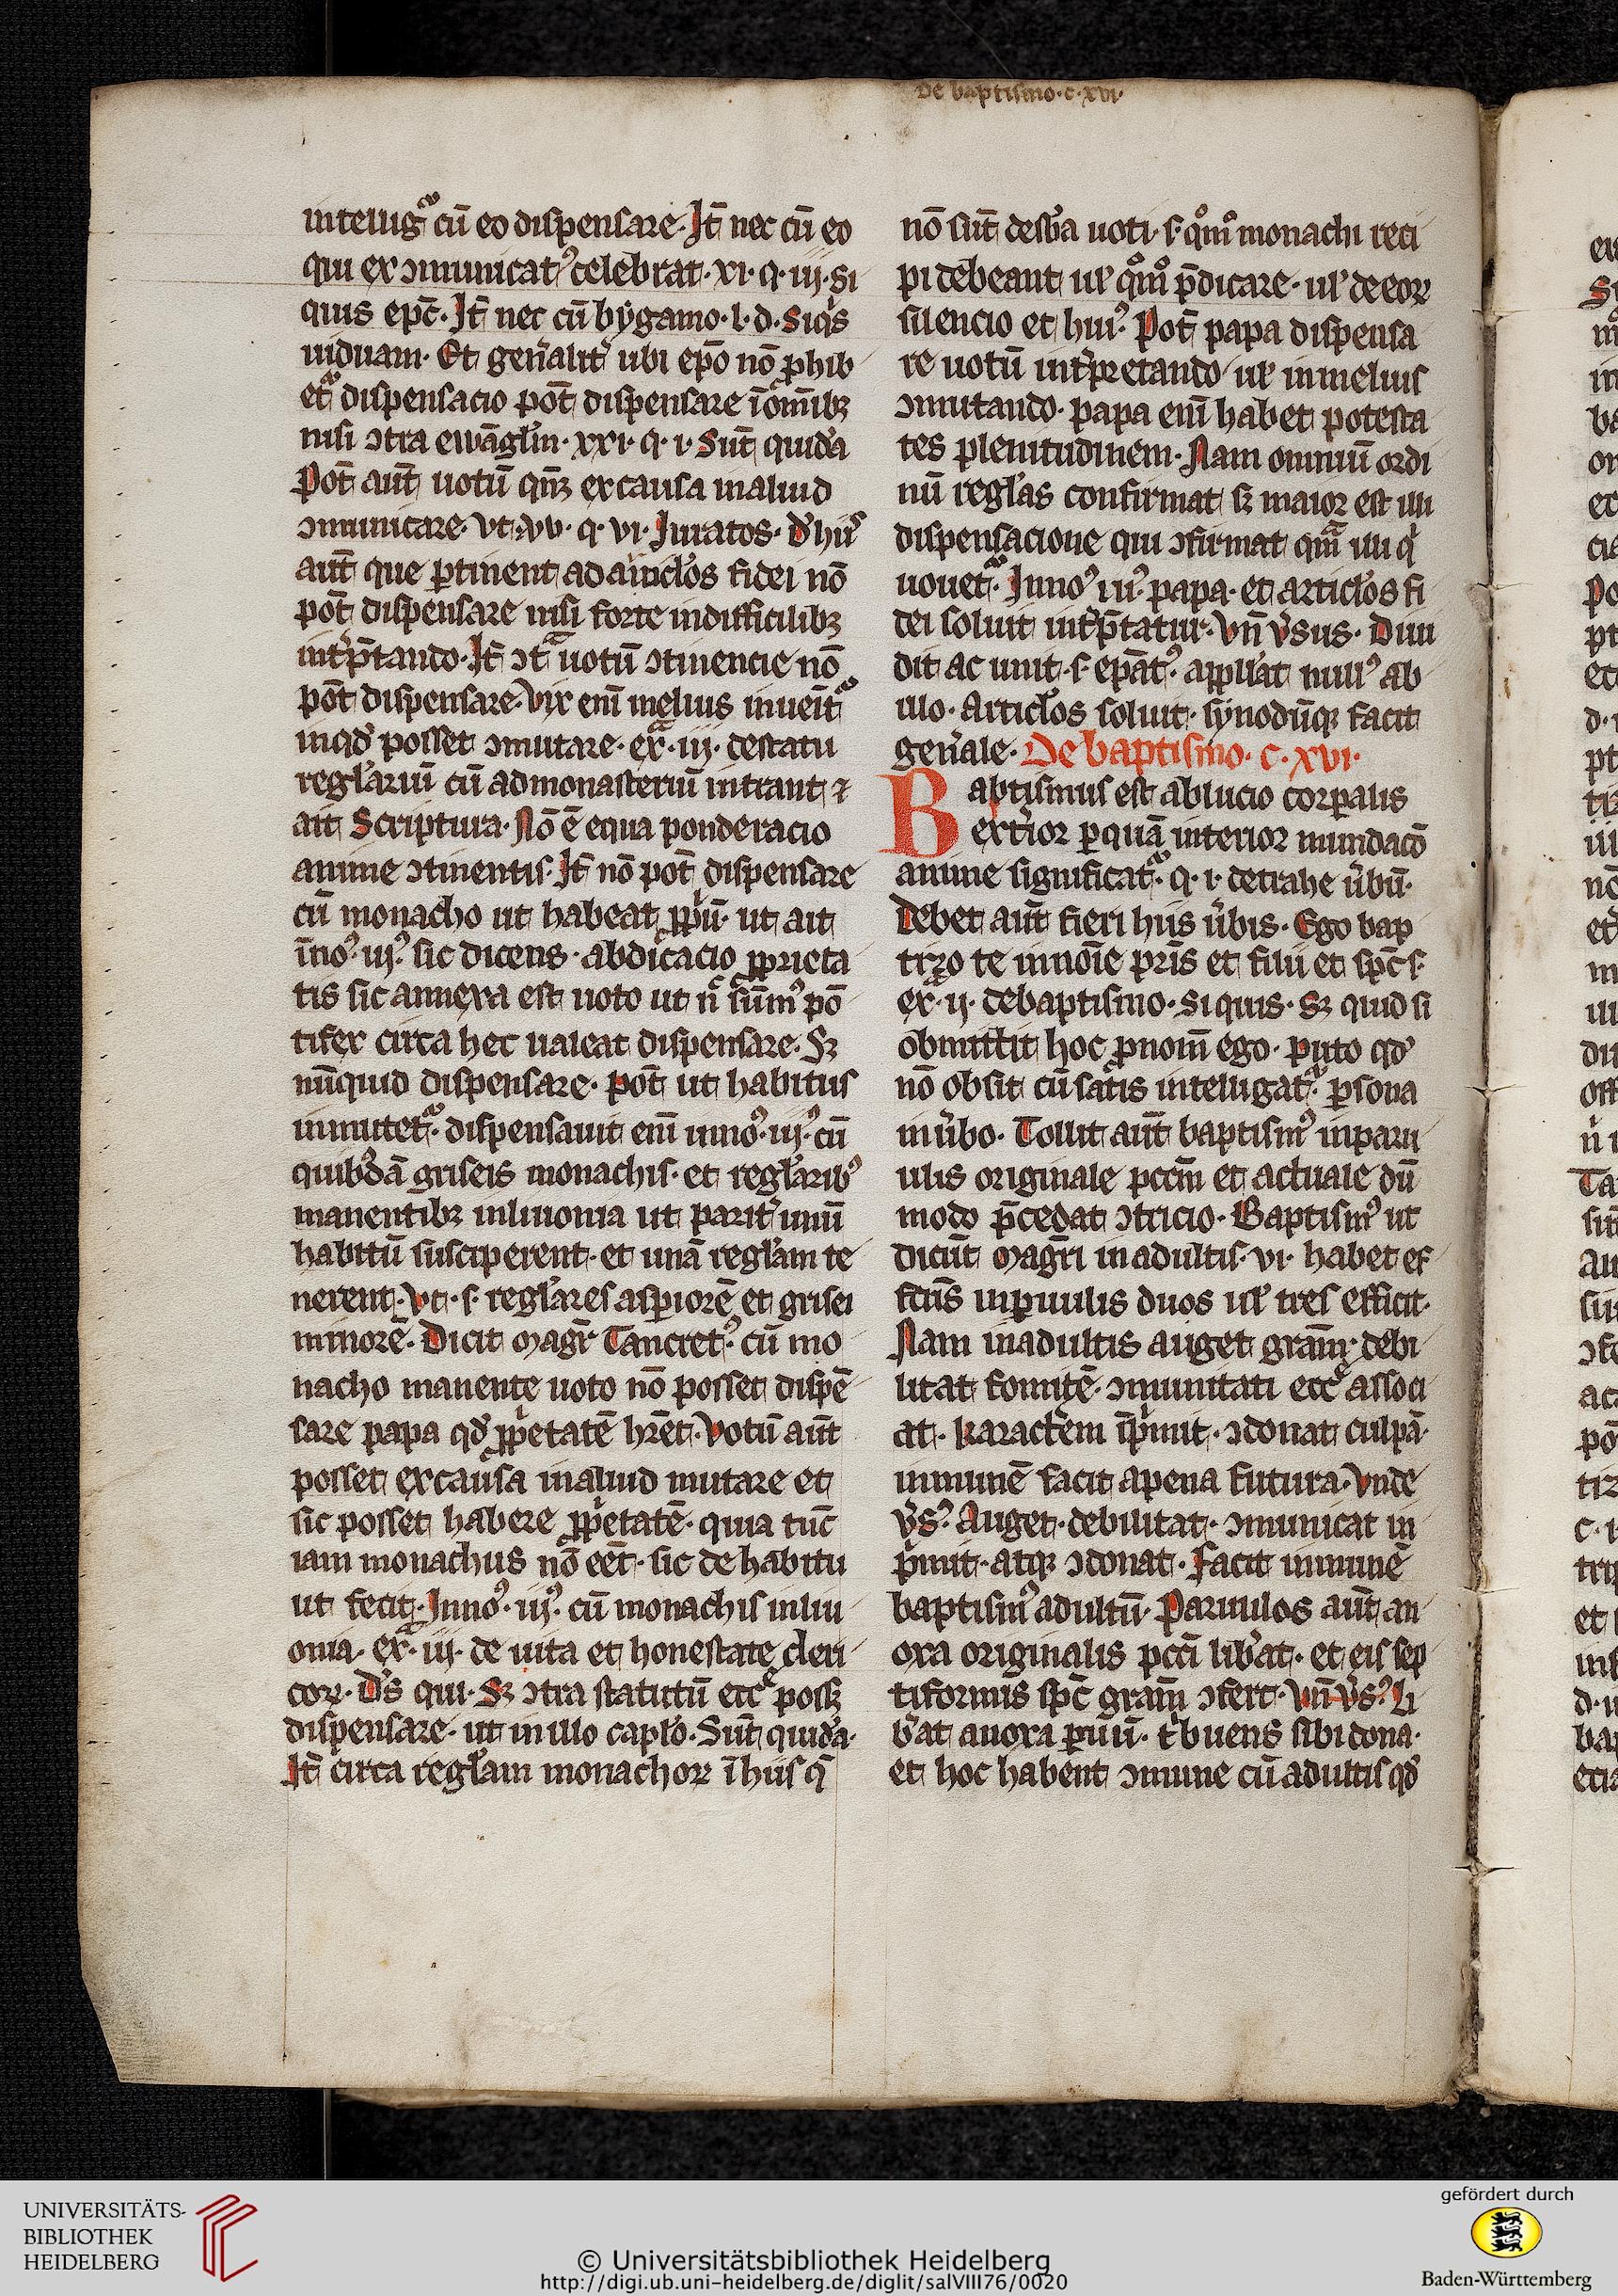 De baptismo·c·xvi·
intellig᷑ cū eo dispensare· It̄ nec cū eo
qui exↄmunicatꝰ celebrat· xi· q· iij· Si
quis epc̄· It̄ nec cū bẏgamo· l· d· Siqͥs
uiduam· Et genͣalit̾ ubi epō nō ꝓhib
et᷑ dispensacio pōt dispensare ī om̄ibꝫ
nisi ↄtra ewāgl̾m· xxi· q· i· Sūt quidā
Pōt aūt uotū qn̄ꝫ ex causa in aliud
ↄmunicare· vt· q· vi· Iuratos· d̾ hiꝰ
aūt que ꝑtinent ad articl̾os fidei nō
pōt dispensare nisi forte in difficilibꝫ
int̾p̄tando· It̄ ↄtͣ uotū ↄtinencie nō
pōt dispensare· Vix enī melius inueīt᷑
in qd̾ posset ↄmutare· exͣ· iij· de statu
regl̾ariū cū ad monasteriū intrant ⁊
ait Scriptura· Nō ē equa ponderacio
anime ↄtinentis· It̄ nō pōt dispensare
cū monacho ut habeat ꝓpͥū· ut ait
īnoꝰ· iijꝰ· sic dicens· abdicacio ꝓprieta
tis sic annexa est uoto ut nͨ sūmꝰ pō
tifex circa hec ualeat dispensare· Sꝫ
nūquid dispensare· pōt ut habitus
inmutet᷑· dispensauit enī innoꝰ· iijꝰ· cū
quibꝰdā griseis monachis· et regl̾aribꝰ
manentibꝫ in liuonia ut parit̾ unū
habitū susciperent· et unā regl̾am te
nerent· Vt· s· regl̾ares asꝑiorē et grisei
minorē· Dicit mag̾r Tancretꝰ· cū mo
nacho manente uoto nō posset dispē
sare papa qd̾ ꝓpͥetatē hr̄et· Votū aūt
posset ex causa in aliud mutare et
sic posset habere ꝓpͥetatē· quia tūc
iam monachus nō eēt· sic de habitu
ut fecit· Innoꝰ· iijꝰ· cū monachis in liu
onia· exͣ· iij· de uita et honestate cleri
coꝝ· Dn̄s qui· Sꝫ ↄtra statutū eccͤ possꝫ
dispensare· ut in illo capl̾o· Sūt quidā·
It̄ circa regl̾am monachoꝝ ī hiis q̄
nō sūt de sb̾a uoti· s· qͦmͦ monachi reci
pi debeant ul̾ qͦmͦ p̄dicare· ul̾ de eoꝝ
silencio et huiꝰ· Pōt papa dispensa
re uotū int̾pretando ul̾ in melius
ↄmutando· papa enī habet potesta
tes plenitudinem· Nam omniū ordi
nū regl̾as confirmat sꝫ maior est illi
dispensacione qui ↄfirmat qmͣ illi qͥ
uouet᷑· Innoꝰ iiiꝰ papa· et articl̾os fi
dei soluit int̾p̄tatur· Vn̄ v̾sus· Diui
dit ac unit· s· epātꝰ· appll̾at nullꝰ ab
illo· Articl̾os soluit· sẏnodūqꝫ facit
genͣale· De baptismo· c· xvi·
Babtismus est ablucio corꝑalis
exte̾ior ꝑ quā interior mundacō
anime significat᷑· q· i· detrahe u̾bū·
Debet aūt fieri hiis u̾bis· Ego bap
tizo te in noīe pr̄is et filii et spc̄ s·
exͣ· ij· de baptismo· Si quis· Sꝫ quid si
obmittit hoc ꝓnom̄ ego· puto qd̾
nō obsit cū satis intelligat᷑· ꝑsona
in u̾bo· Tollit aūt baptismꝰ in paru
ulis originale pccm̄ et actuale dū
modo p̄cedat ↄtricio· Baptismꝰ ut
dicūt mag̾ri in adultis· vi· habet ef
fctūs in ꝑuulis duos ul̾ tres efficit·
Nam in adultis auget gram̄· debi
litat fomitē· ↄmunitati eccͤ associ
at· Karactͤem īpͥmit· ↄdonat culpā·
inmunē facit a pena futura· Vnde
v̾sꝰ· Auget· debilitat· ↄmunicat in
pͥmit· atqꝫ ↄdonat· Facit inmunē
baptismꝰ adultū· Paruulos aūt an
oxa originalis pcci lib̾at· et eis sep
tiformis spc̄ gram̄ ↄfert· Vn̄ v̾sꝰ· Li
b̾at a noxa ꝑuū· tͥbuens sibi dona·
et hoc habent ↄmune cū adultis qd̾
UNIVERSITÄTS-
BIBLIOTHEK
HEIDELBERG
© Universitätsbibliothek Heidelberg
http://digi.ub.uni-heidelberg.de/diglit/salVIII76/0020
gefördert durch
Baden-Württemberg